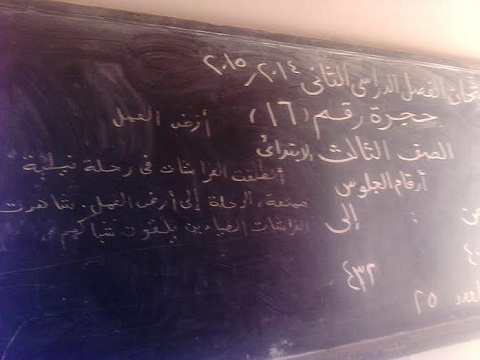 امتحان الفصل الدراسى الثانى ٢٠١٤/٢٠١٥
حجرة رقم (١٦)
الصف الثالث الابتدائى
أرقام الجلوس
من : إلى
٤٣٢
العدد ٢٥
أرض الفيل
انطلقت الفراشات فى رحلة نيلية
ممتعة، الرحلة إلى أرض الفيل. شاهدت
الفراشات الصيادين يلقون شباكهم فى